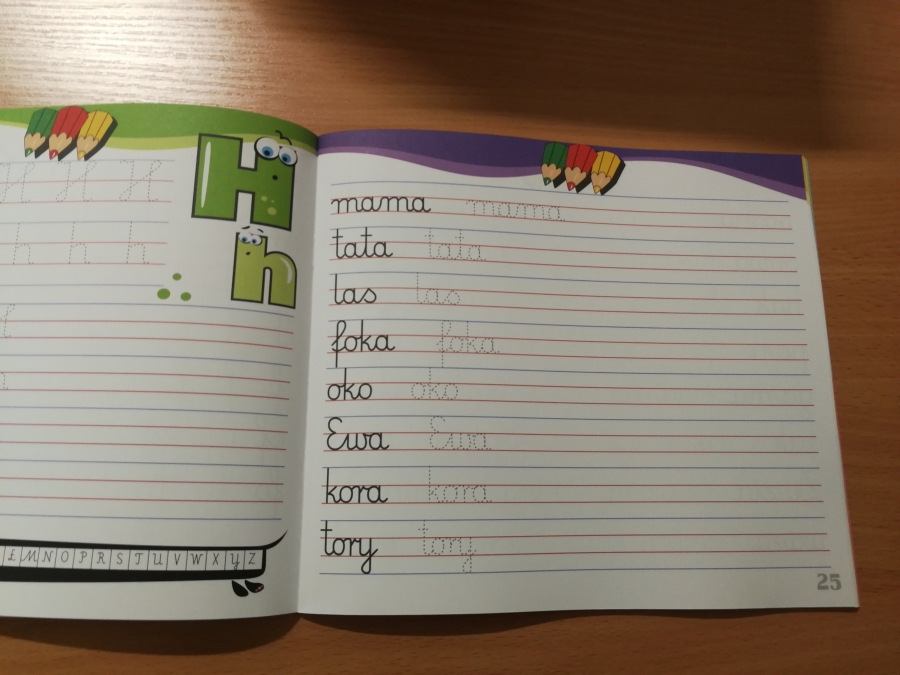 H H H
h h h
H
h
Ł M N O P R S T U V W X Y Z
mama mama
tata tata
las las
foka foka
oko oko
Ewa Ewa
kora kora
tory tory
25